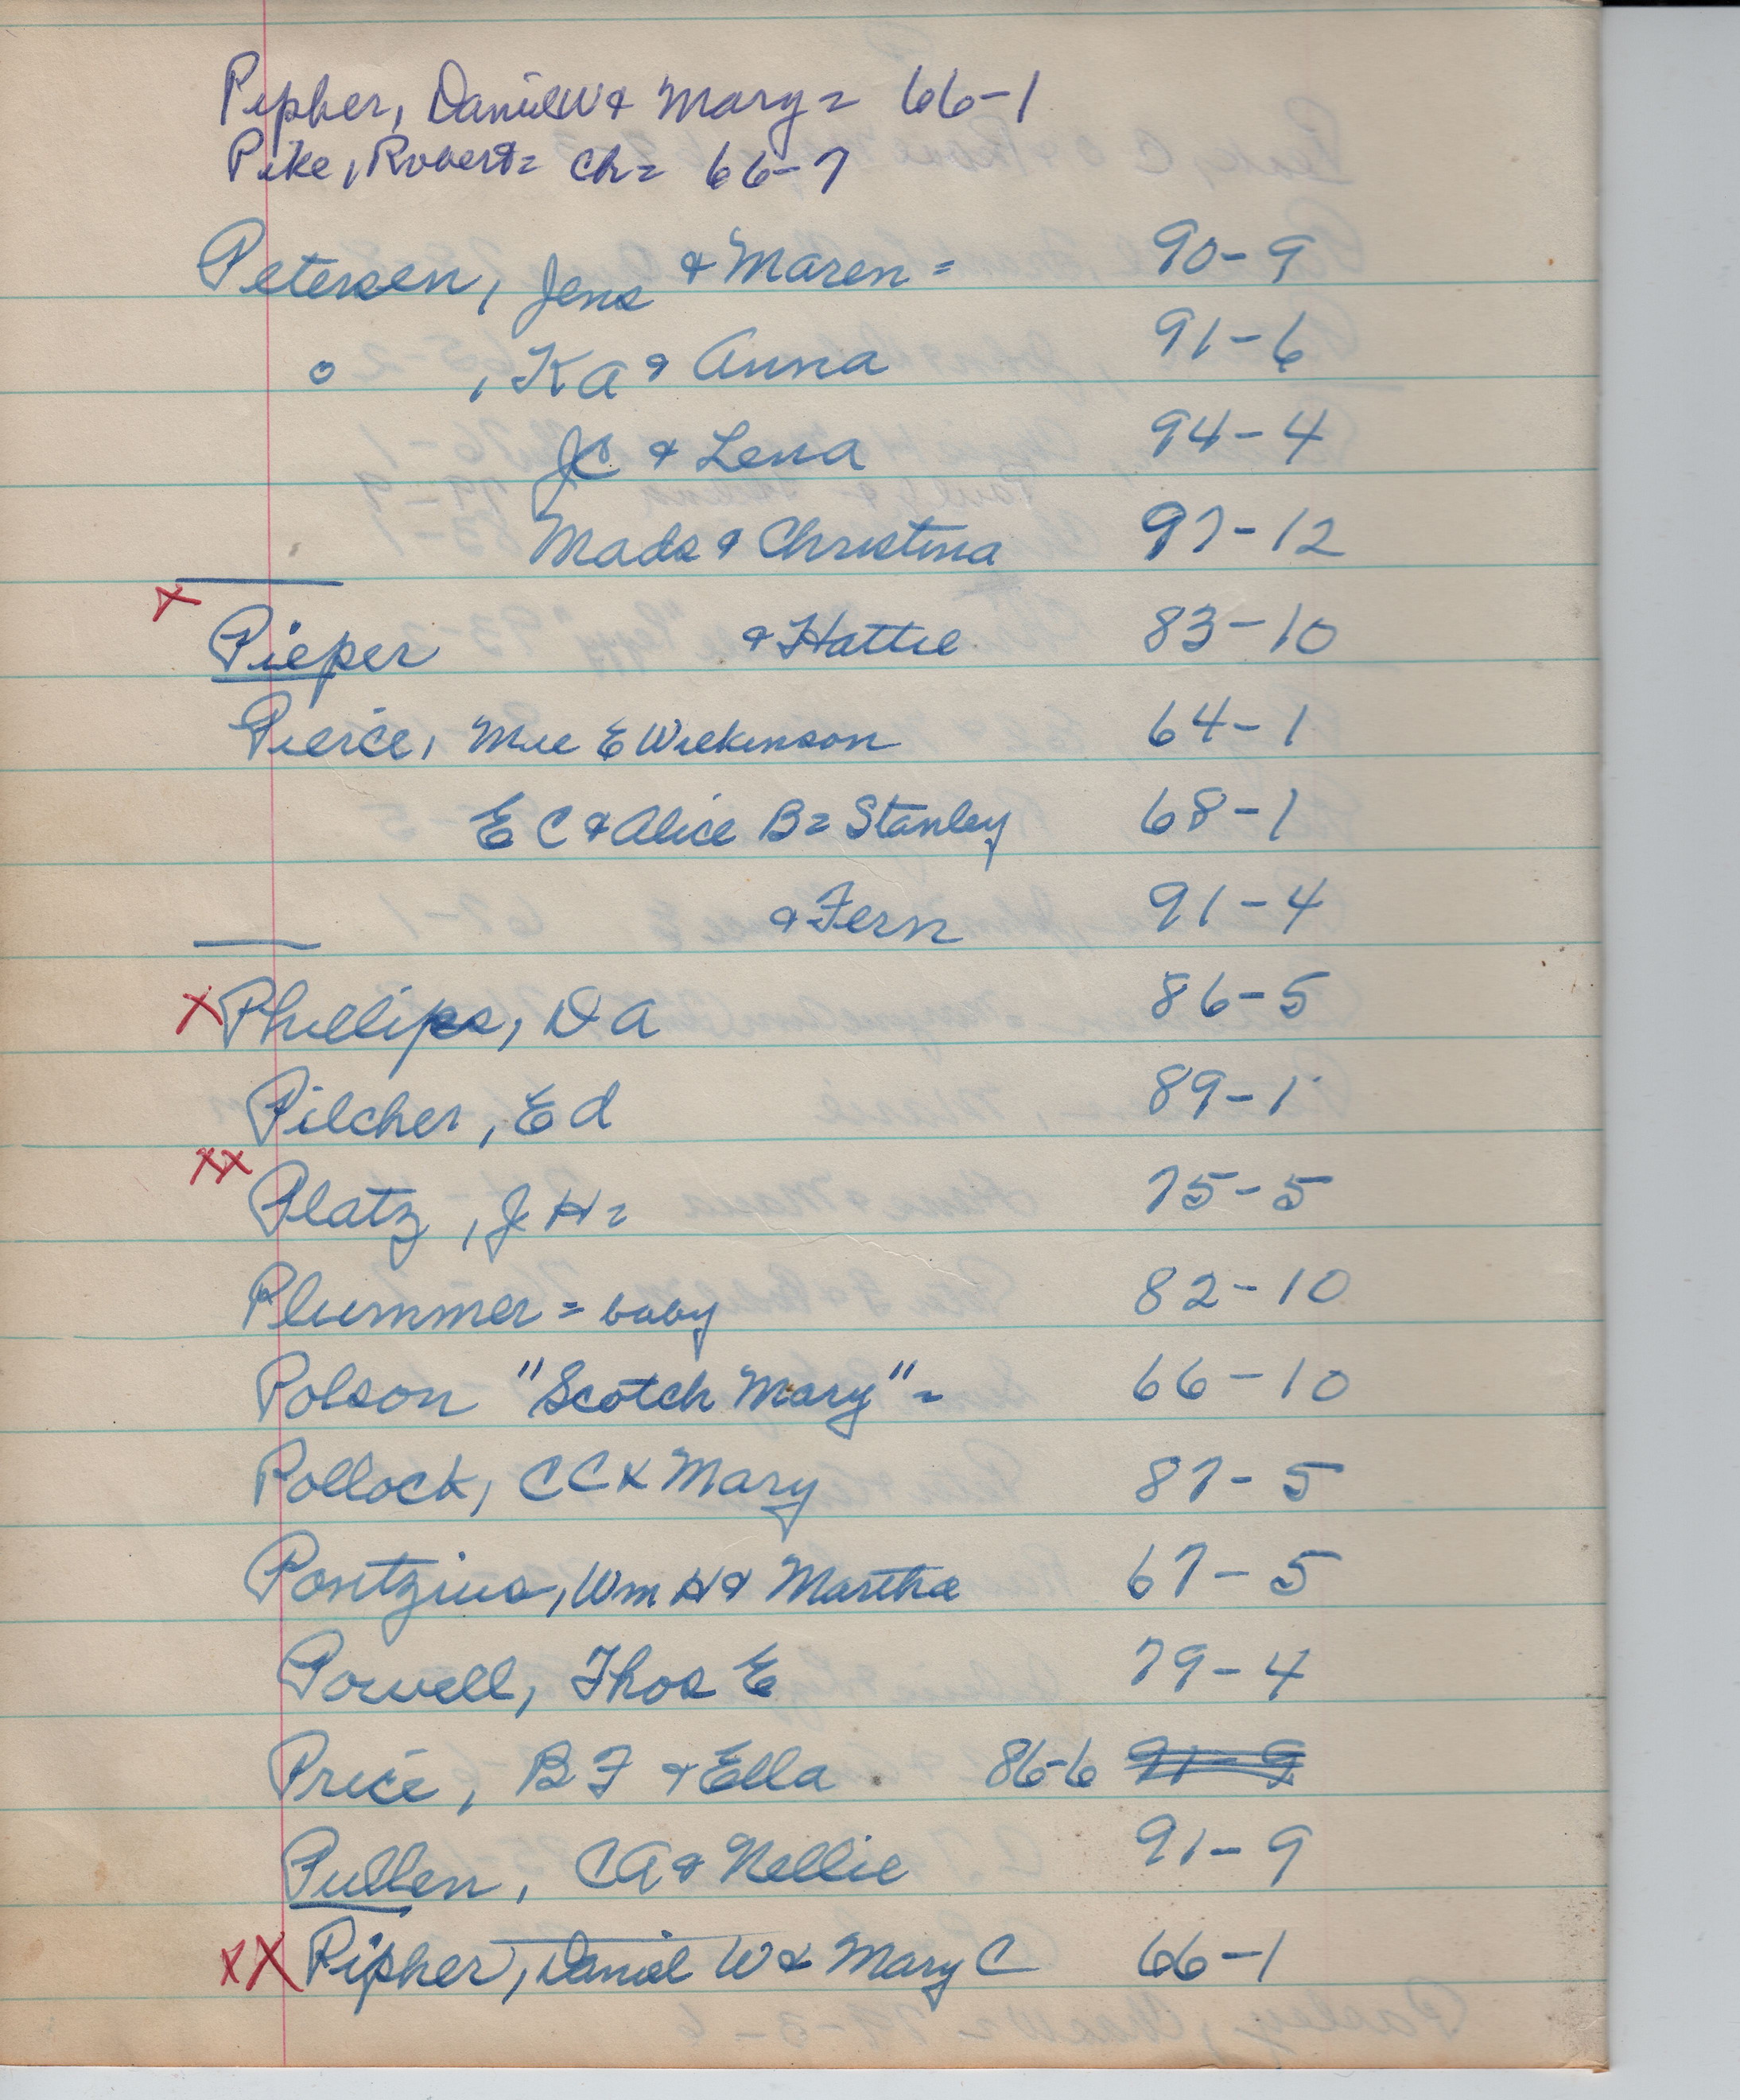 Pipher, Daniel W & Mary = 66-1
Pike, Robert = Ch = 66-7
Petersen, Jens & Maren = 90-9
" , K A & Anna 91-6
J C & Lena 94-4
Mads & Christina 97-12
x
Pieper & Hattie 83-10
Pierce, E Wilkinson 64-1
E C & Alice B = Stanley 68-1
& Fern 91-4
x Phillips, D A 86-5
Pilcher, Ed 89-1
xx
Platz, J H = 75-5
Plummer = baby 82-10
Polson "Scotch Mary" = 66-10
Pollock, C C & Mary 87-5
Pontzius, Wm H & Martha 67-5
Powell, Thos E 79-4
Price, B F & Ella 86-6 91-9
Pullen, C A & Nellie 91-9
xx Pipher, Daniel W & Mary C 66-1